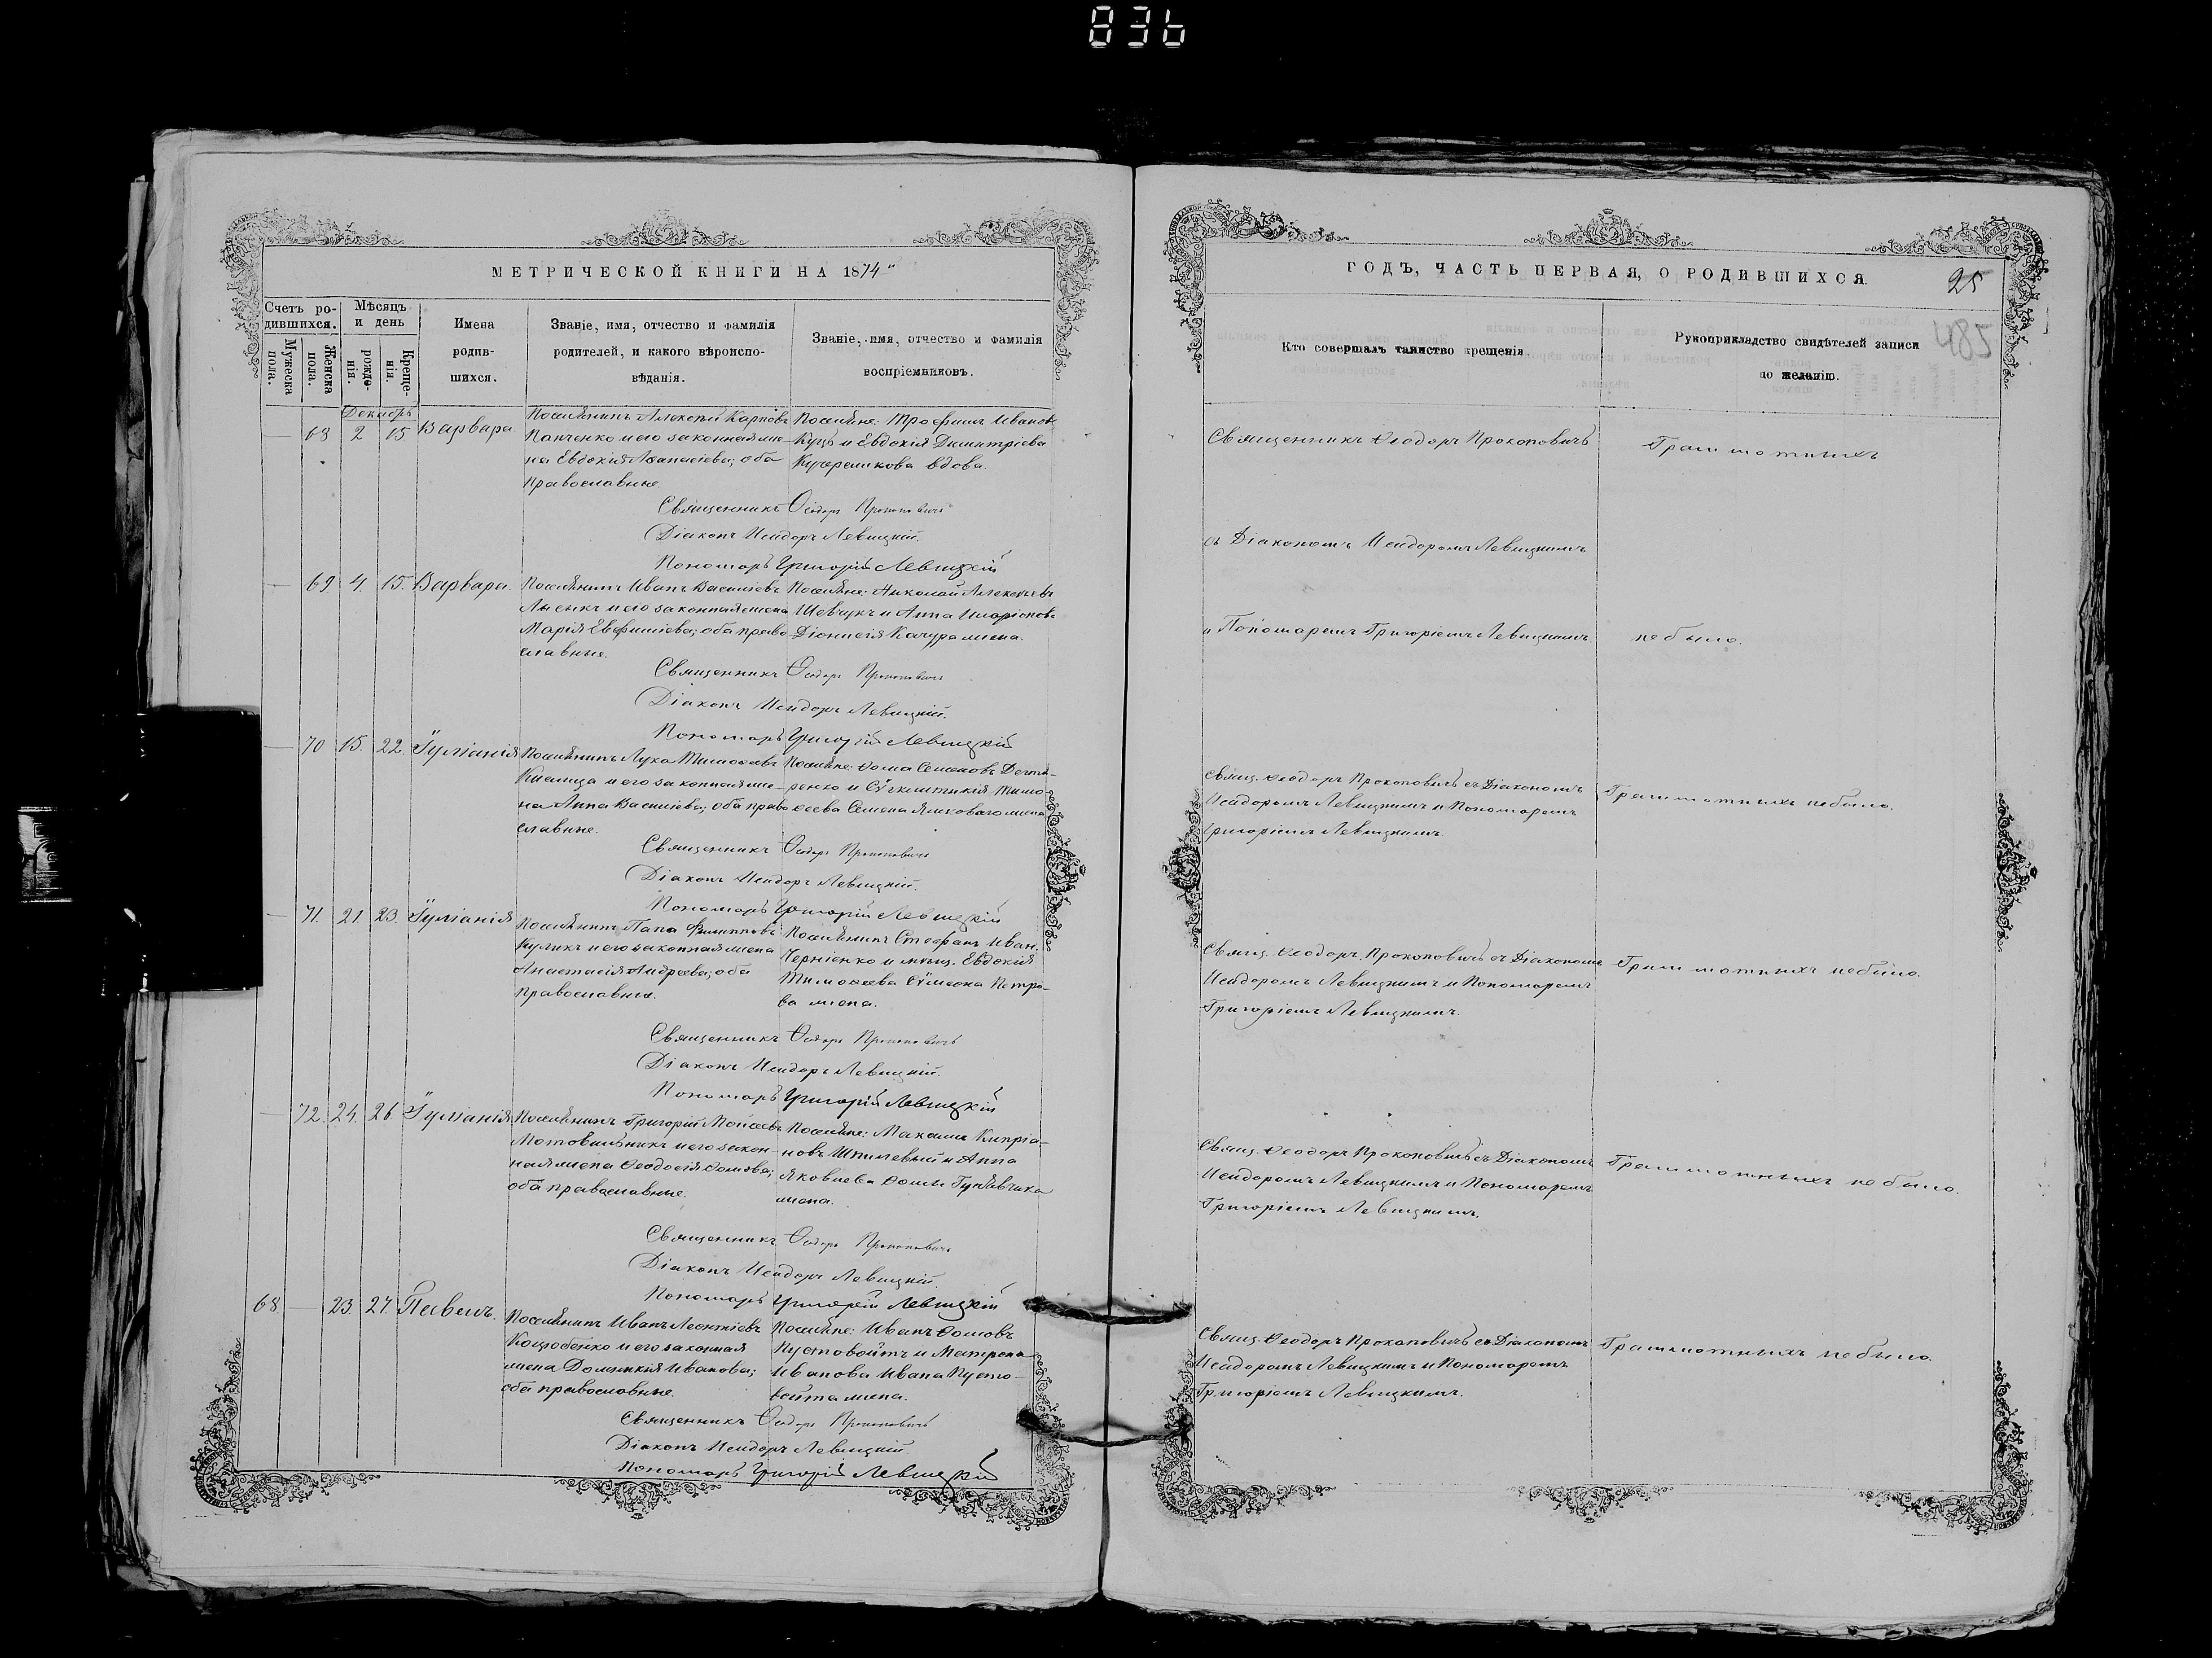 836
МЕТРИЧЕСКОЙ КНИГИ НА 1874"
Счетъ ро-
дившихся.
Мужеска
пола.
Женска
пола.
Мѣсяцъ
и день
рожде-
нія.
Креще-
нія.
Имена
родив-
шихся.
Званіе, имя, отчество и фамилія
родителей, и какого вѣроиспо-
вѣданія.
Званіе, имя, отчество и фамилія
воспріемниковъ.
Декабрь
— 68 2 15 Варвара.
Поселянинъ Алексѣй Карповъ
Панченко и его законная же-
на Евдокія Афанасіева; оба
православные.
Поселяне: Трофимъ Иванов.
Куцъ и Евдокія Димитріева
вдова.
Священникъ Ѳеодоръ Прокоповичъ
Діаконъ Исидоръ Левицкій.
Пономарь Григорій Левицкій
— 69 4. 15. Варвара.
Поселянинъ Иванъ Васильевъ
Лысыкъ и его законная жена
Марія Евфиміева; оба право-
славные.
Поселяне: Николай Алексѣевъ
Шевчукъ и Анна Иларіонова
Діонисія Качура жена.
Священникъ Ѳеодоръ Прокоповичъ
Діаконъ Исидоръ Левицкій.
Пономарь Григорій Левицкій
— 70 15. 22 Іуліанія
Поселянинъ Лука Тимоѳеевъ
и его законная же-
на Анна Васильева; оба право
славные.
Поселяне: Ѳома Семеновъ Дегтя-
ренко и Сѵнклитикія Тимо-
ѳеева Семена жена
Священникъ Ѳеодоръ Прокоповичъ
Діаконъ Исидоръ Левицкій.
Пономарь Григорій Левицкій
— 71. 21 23. Іуліанія
Поселянинъ Филипповъ
Куликъ и его законная жена
Анастасія Андреева; оба
православные.
Поселянинъ Стефанъ Иван.
Черніенко и Евдокія
Тимоѳеева Сѵмеона Петро-
ва жена.
Священникъ Ѳеодоръ Прокоповичъ
Діаконъ Исидоръ Левицкій.
Пономарь Григорій Левицкій
— 72. 24. 26 Іуліанія
Поселянинъ Григорій Моисеевъ
Мотовильникъ и его закон-
ная жена Ѳеодосія Ѳомова;
оба православные.
Поселяне: Максимъ Кипріа-
новъ Шпилевый и Анна
Яковлева Ѳомы
жена.
Священникъ Ѳеодоръ Прокоповичъ
Діаконъ Исидоръ Левицкій.
Пономарь Григорій Левицкій
68 — 23 27. Павелъ.
Поселянинъ Иванъ Леонтіевъ
Коцюбенко и его законная
жена Домникія Иванова;
оба православные.
Поселяне: Иванъ Ѳомовъ
Пустовойтъ и Матрона
Иванова Ивана Пусто-
войта жена.
Священникъ Ѳеодоръ Прокоповичъ
Діаконъ Исидоръ Левицкій
Пономарь Григорій Левицкій
ГОДЪ, ЧАСТЬ ПЕРВАЯ, О РОДИВШИХСЯ.
25
485
Кто совершалъ таинство крещенія.
Рукоприкладство свидѣтелей записи
по желанію.
Священникъ Ѳеодоръ Прокоповичъ
Грамотныхъ
съ Діакономъ Исидоромъ Левицкимъ
и Пономаремъ Григоріемъ Левицкимъ.
не было.
Свящ. Ѳеодоръ Прокоповичъ съ Діакономъ
Исидоромъ Левицкимъ и Пономаремъ
Григоріемъ Левицкимъ.
Грамотныхъ не было.
Свящ. Ѳеодоръ Прокоповичъ съ Діакономъ
Исидоромъ Левицкимъ и Пономаремъ
Григоріемъ Левицкимъ.
Грамотныхъ не было.
Свящ. Ѳеодоръ Прокоповичъ съ Діакономъ
Исидоромъ Левицкимъ и Пономаремъ
Григоріемъ Левицкимъ.
Грамотныхъ не было.
Свящ. Ѳеодоръ Прокоповичъ съ Діакономъ
Исидоромъ Левицкимъ и Пономаремъ
Григоріемъ Левицкимъ.
Грамотныхъ не было.